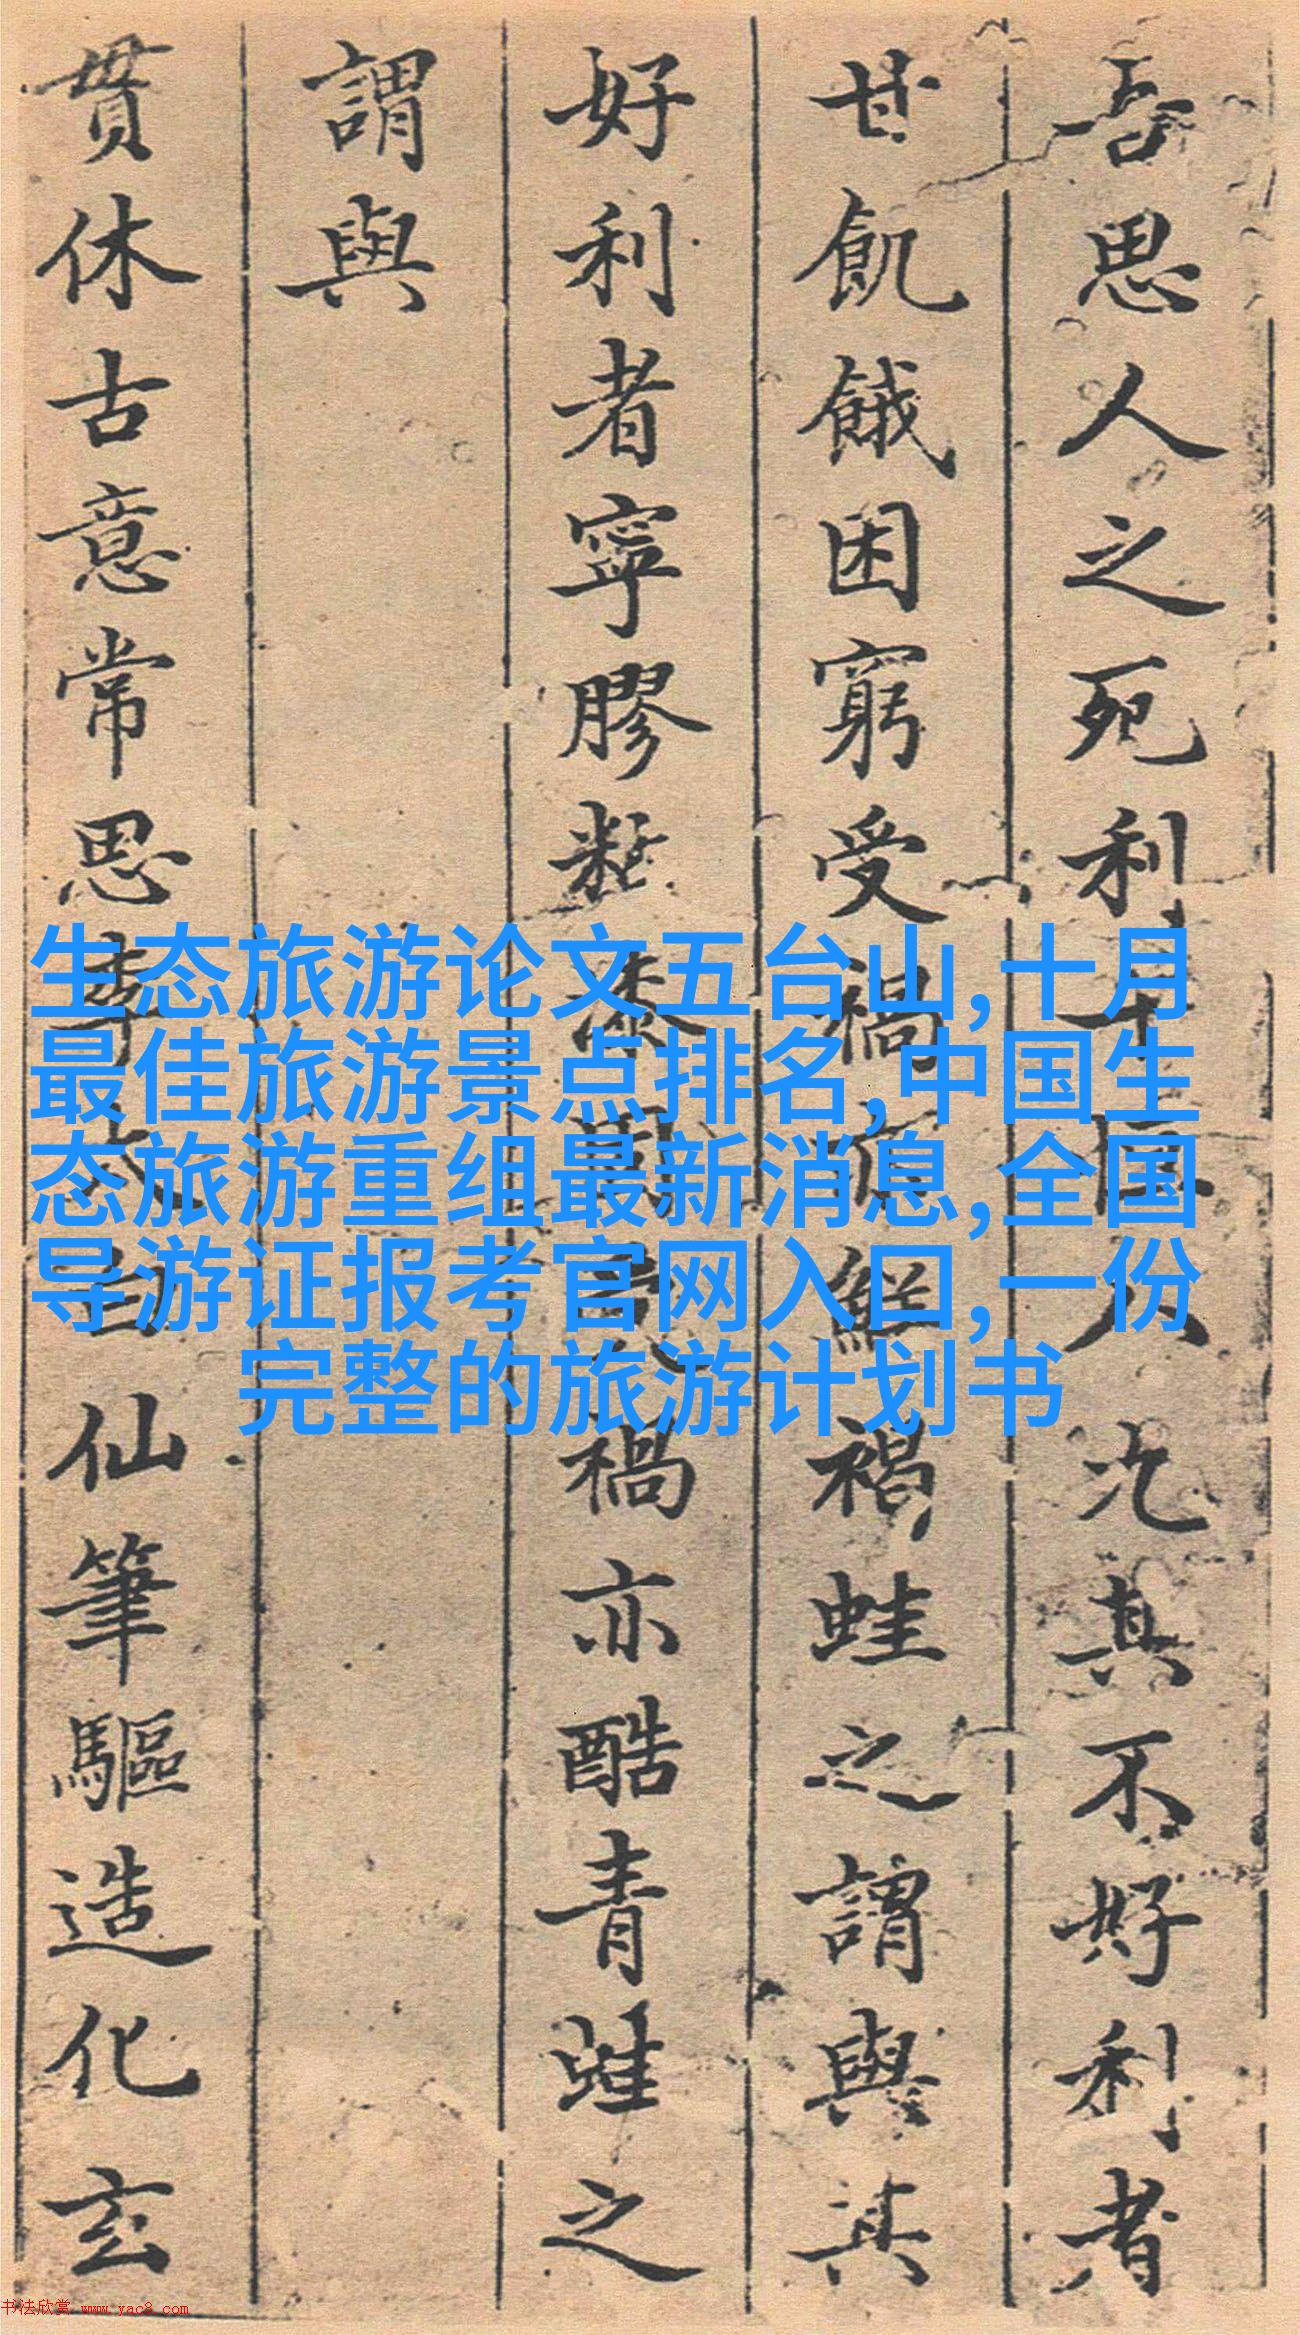 吾思人之死利
人
其不好利者
甘飢餓困窮受禍
褐蛙之謂與其
好利者寧膠
禍亦酷青蛙之
謂與
貫休古意常思李太白仙筆驅造化玄
生态旅游论文五台山,十月
最佳旅游景点排名,中国生
态旅游重组最新消息,全国
导游证报考官网入口,一份
完整的旅游计划书
书法欣赏 www.yac8.com